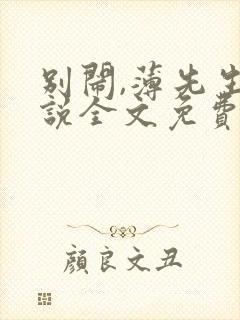 别鬧,薄先生
說全文免費
顏良文丑